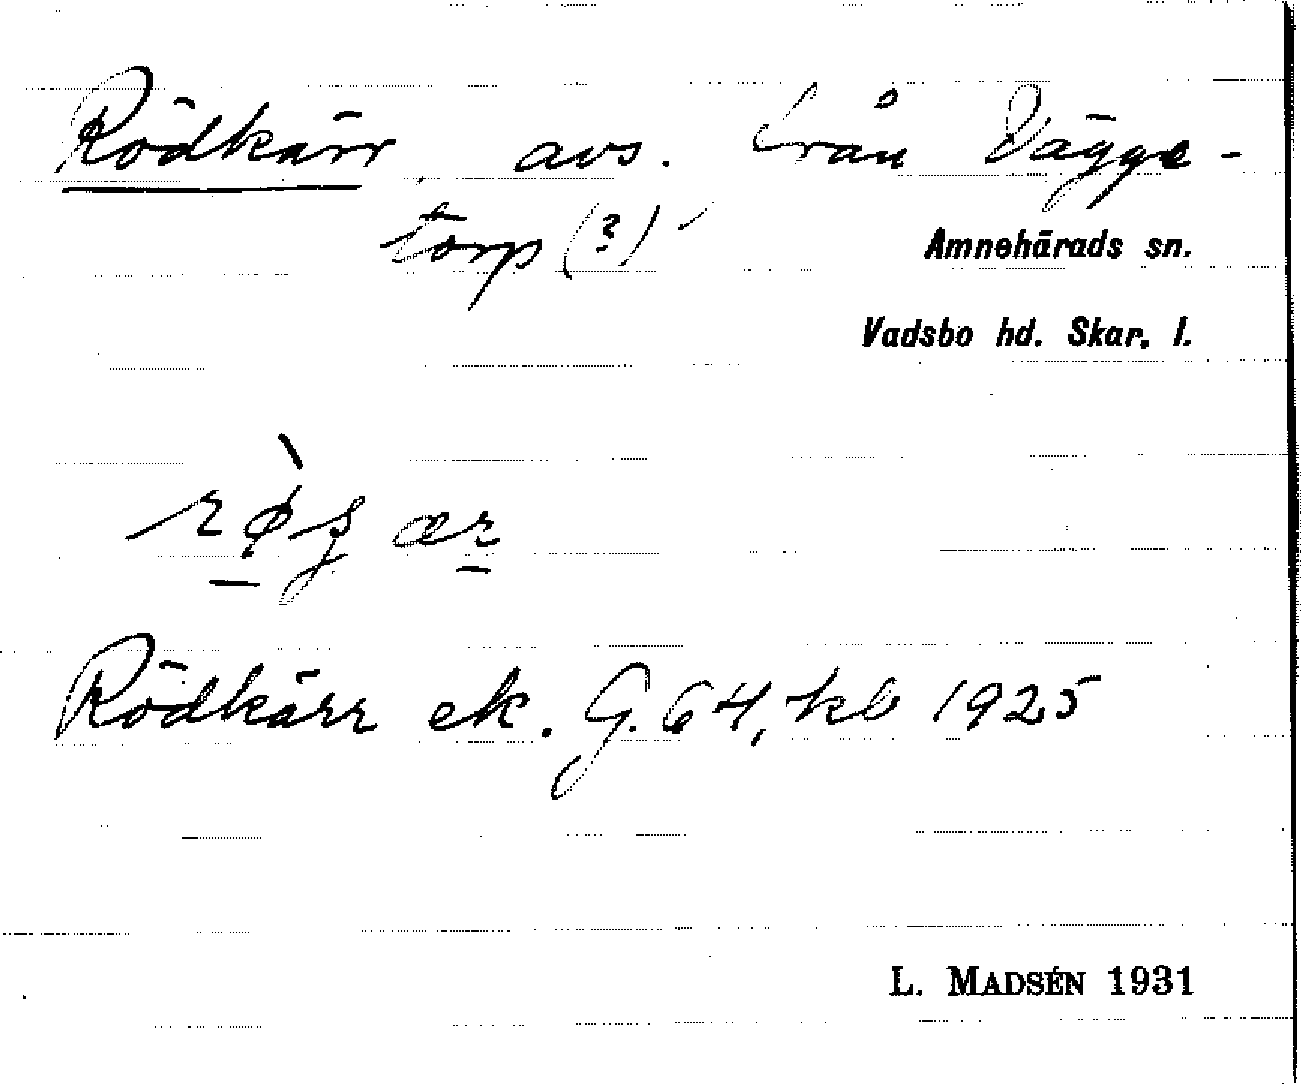 Rödkärr avs. från Vägge-
torp (?)
Amnehärads sn.
Vadsbo hd. Skar. l.
Rödkärr ek. G. 64, kb 1925
L. MADSÉN 1931